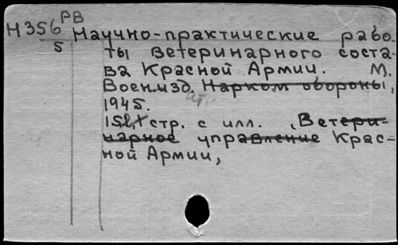 РВ
Н356 Научно-практические рабо-
5 ты ветеринарного соста-
ва Красной Армии. М.
Воениэд. Нарком обороны,
1945.
стр. с илл. (Ветери-
нарное управление Крас-
ной Армии,